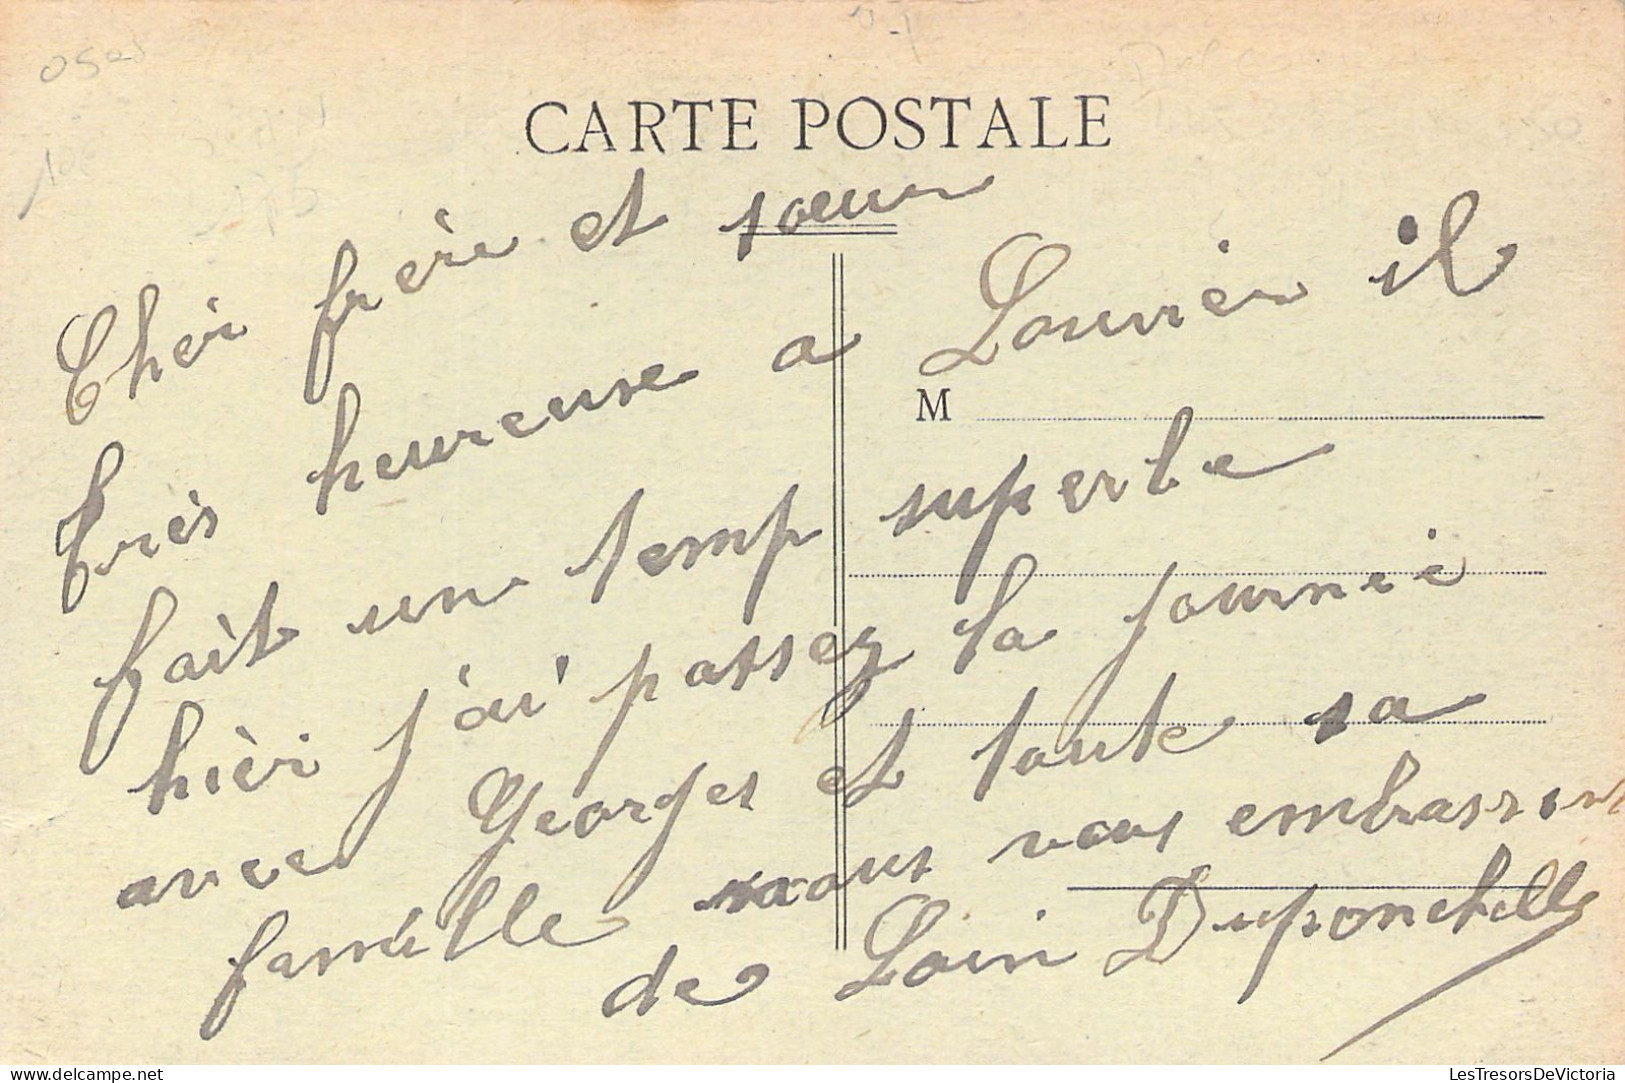 CARTE POSTALE
Chèr frère et sœur
très heureuse a Louvier il
M
fait un temp superbe
hièr j'ai passez la journée
avec Georges et toute sa
famille nous vous embrassons
de Loin Duponchelle
delcampe.net
LesTresorsDeVictoria